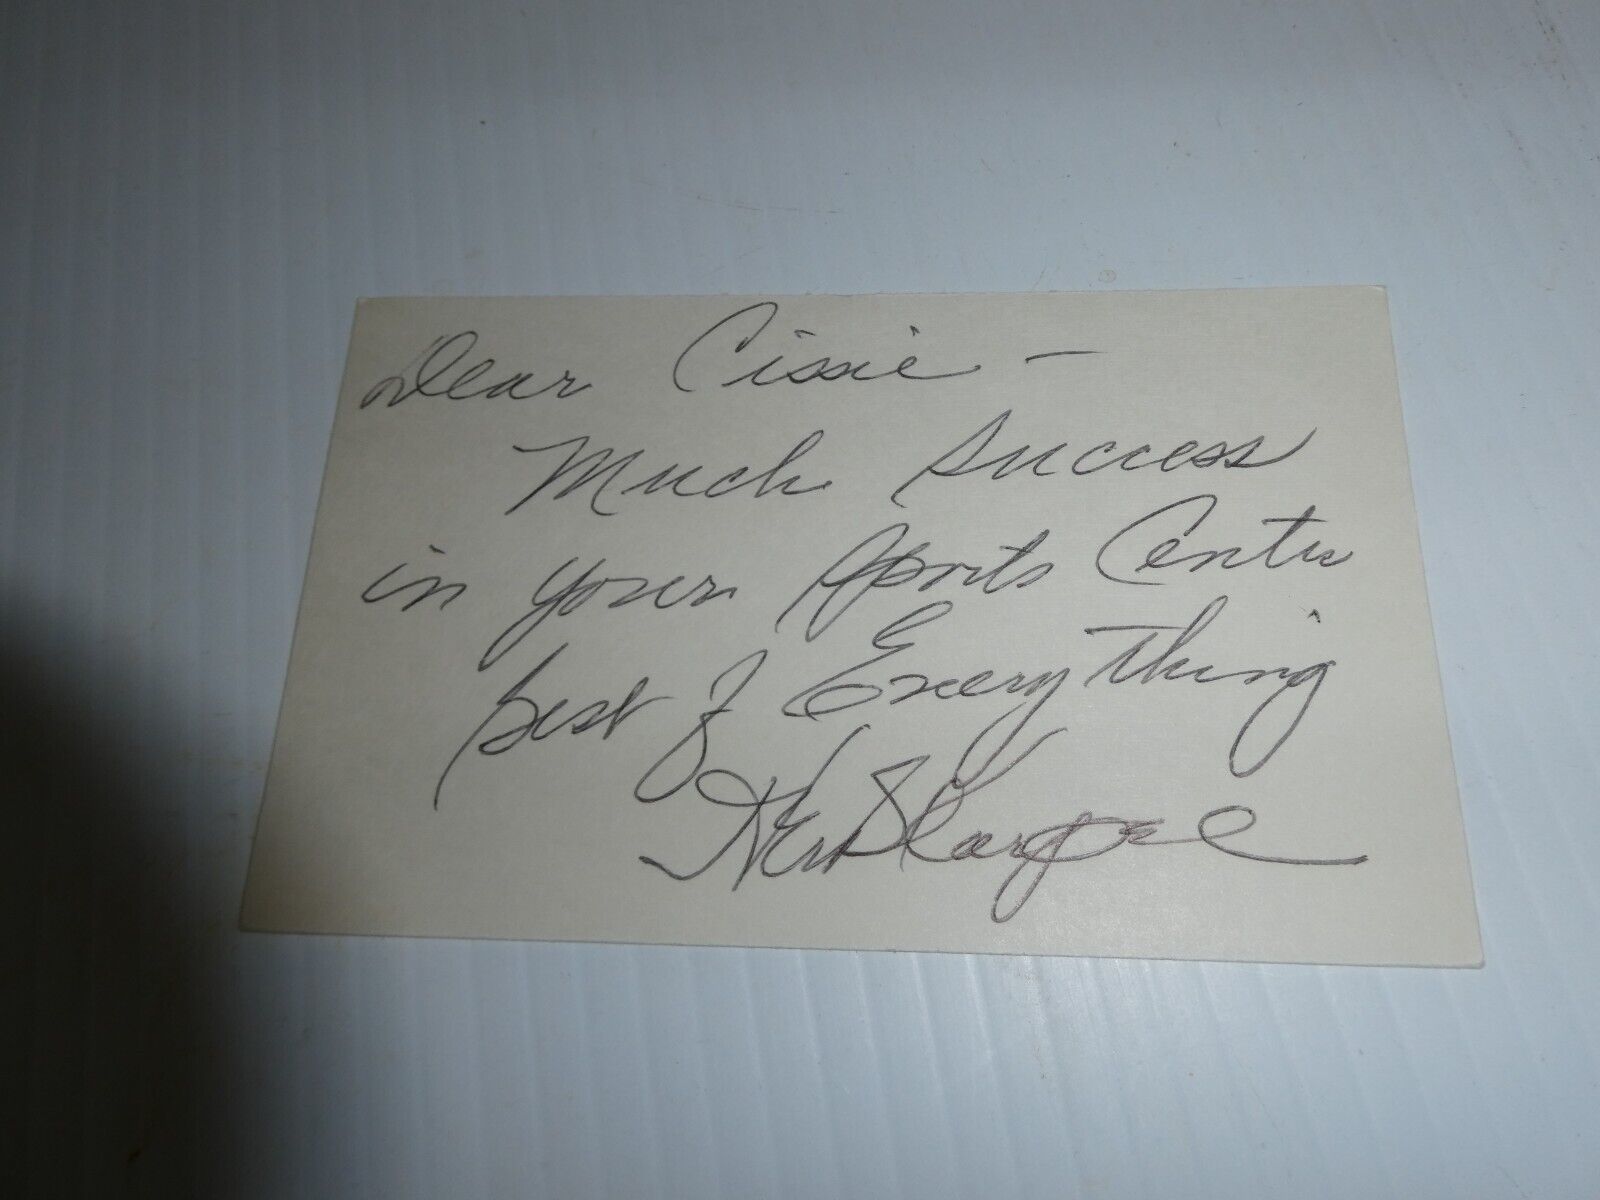 Dear Cissie –
Much success
in your Sports Center
best of Everything
Herb Karpel